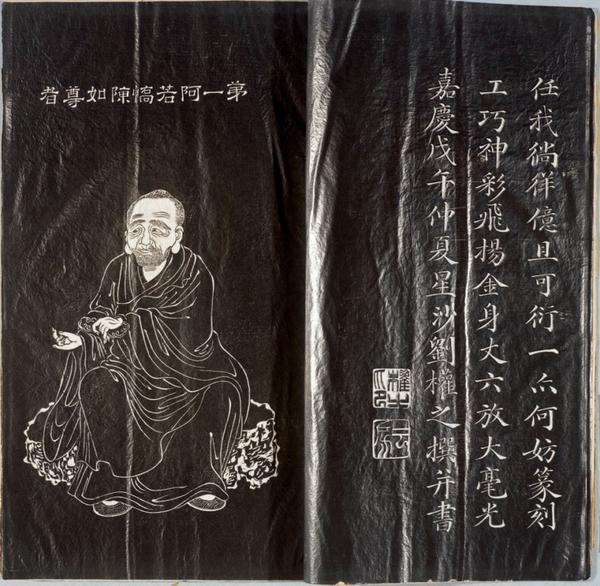 任我徜徉億且可衍一亦何妨篆刻
工巧神彩飛揚金身丈六放大毫光
嘉慶戊午仲夏星沙劉權之撰并書
第一阿若憍陳如尊者